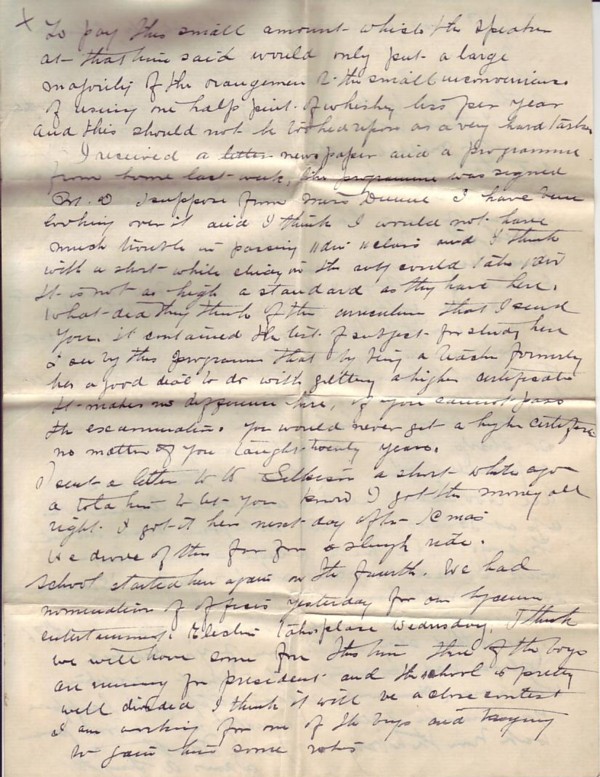 X To pay this small amount which the speaker
at that time said would only put a large
majority of the orangemen to the small inconvenience
of using one half pint of whiskey less per year
and this should not be looked upon as a very hard task
I received a letter newspaper and a programme
from home last week, the programme was signed
I suppose from Miss I have been
looking over it and I think I would not have
much trouble in passing and I think
with a short while in the could take
It is not as high a standard as they have here.
What did they think of the curriculum that I send
you. it contained the list of subject for study here
I see by this programme that by being a teacher formerly
has a good deal to do with getting a higher certificate
It makes no difference here, if you cannot pass
the examination. You would never get a high certificate
no matter if you taught twenty years.
I sent a letter to a short while ago
a told him to let you know I got the money all
right. I got it here next day after Xmas
We drove of this far for a sleigh ride.
School started here again on the fourth. We had
nomination of officers yesterday for our Lyceum
entertainment. Election takes place Wednesday. I think
we will have some fun this time three of the boys
are running for president and the school is pretty
well divided I think it will be a close contest
I am working for one of the boys and trying
to gain him some votes